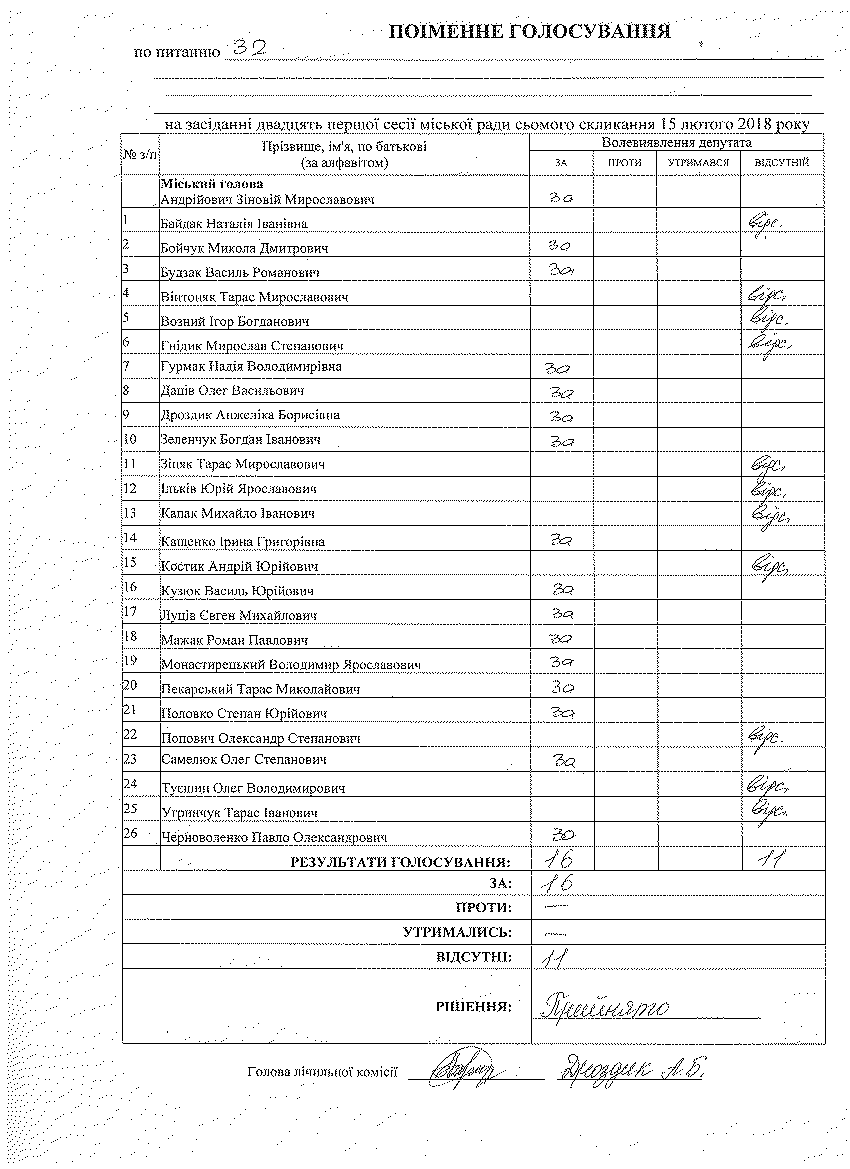 ПОІМЕННЕ ГОЛОСУВАННЯ
по питанню 32
на засіданні двадцять першої сесії міської ради сьомого скликання 15 лютого 2018 року
№ з/п Прізвище, ім'я, по батькові (за алфавітом) Волевиявлення депутата
ЗА ПРОТИ УТРИМАВСЯ ВІДСУТНІЙ
Міський голова
Андрійович Зіновій Мирославович за
1 Байдак Наталія Іванівна відс.
2 Бойчук Микола Дмитрович за
3 Будзак Василь Романович за
4 Вінтоняк Тарас Мирославович відс.
5 Возний Ігор Богданович відс.
6 Гнідик Мирослав Степанович відс.
7 Гурмак Надія Володимирівна за
8 Даців Олег Васильович за
9 Дроздик Анжеліка Борисівна за
10 Зеленчук Богдан Іванович за
11 Зіняк Тарас Мирославович відс.
12 Ільків Юрій Ярославович відс.
13 Капак Михайло Іванович відс.
14 Кащенко Ірина Григорівна за
15 Костик Андрій Юрійович відс.
16 Кузюк Василь Юрійович за
17 Луців Євген Михайлович за
18 Мажак Роман Павлович за
19 Монастирецький Володимир Ярославович за
20 Пекарський Тарас Миколайович за
21 Половко Степан Юрійович за
22 Попович Олександр Степанович відс.
23 Самелюк Олег Степанович за
24 Олег Володимирович відс.
25 Угринчук Тарас Іванович відс.
26 Черноволенко Павло Олександрович за
РЕЗУЛЬТАТИ ГОЛОСУВАННЯ: 16 11
ЗА: 16
ПРОТИ: —
УТРИМАЛИСЬ: —
ВІДСУТНІ: 11
РІШЕННЯ: Прийнято
Голова лічильної комісії Дроздик А.Б.